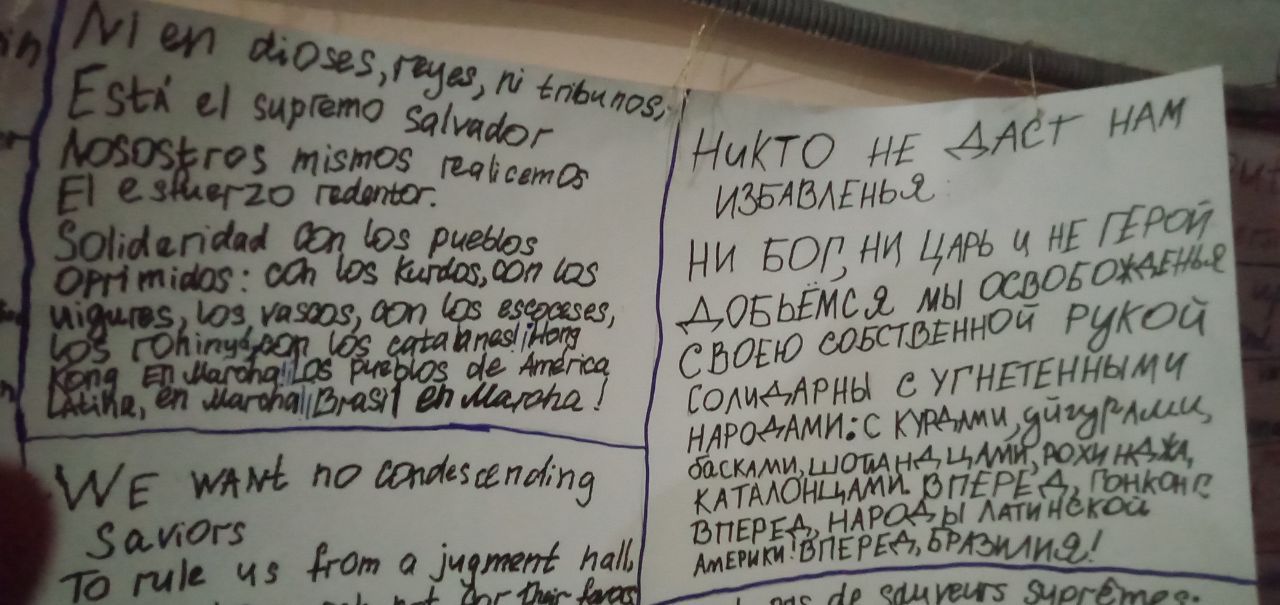 Ni en dioses, reyes, ni tribunos,
Está el supremo salvador
Nosostros mismos realicemos
El esfuerzo redentor.
Solidaridad con los pueblos
oprimidos: con los kurdos, con los
uigures, los vascos, con los escoceses,
los rohinyá, con los catalanes! ¡Hong
Kong En Marcha! ¡Los pueblos de América
Latina, en Marcha! ¡Brasil en Marcha!
WE WANt no condescending
saviors
To rule us from a jugment hall,
НИКТО НЕ ДАСТ НАМ
ИЗБАВЛЕНЬЯ:
НИ БОГ, НИ ЦАРЬ И НЕ ГЕРОЙ
ДОБЬЁМСЯ МЫ ОСВОБОЖДЕНЬЯ
СВОЕЮ СОБСТВЕННОЙ РУКОЙ
СОЛИДАРНЫ С УГНЕТЕННЫМИ
НАРОДАМИ: С КУРДАМИ, уйгурами,
басками, ШОТЛАНДЦАМИ, РОХИНДЖА,
КАТАЛОНЦАМИ. ВПЕРЕД, ГОНКОНГ
ВПЕРЕД, НАРОДЫ ЛАТИНСКОЙ
АМЕРИКИ! ВПЕРЕД, БРАЗИЛИЯ!
pas de sauveurs suprêmes: